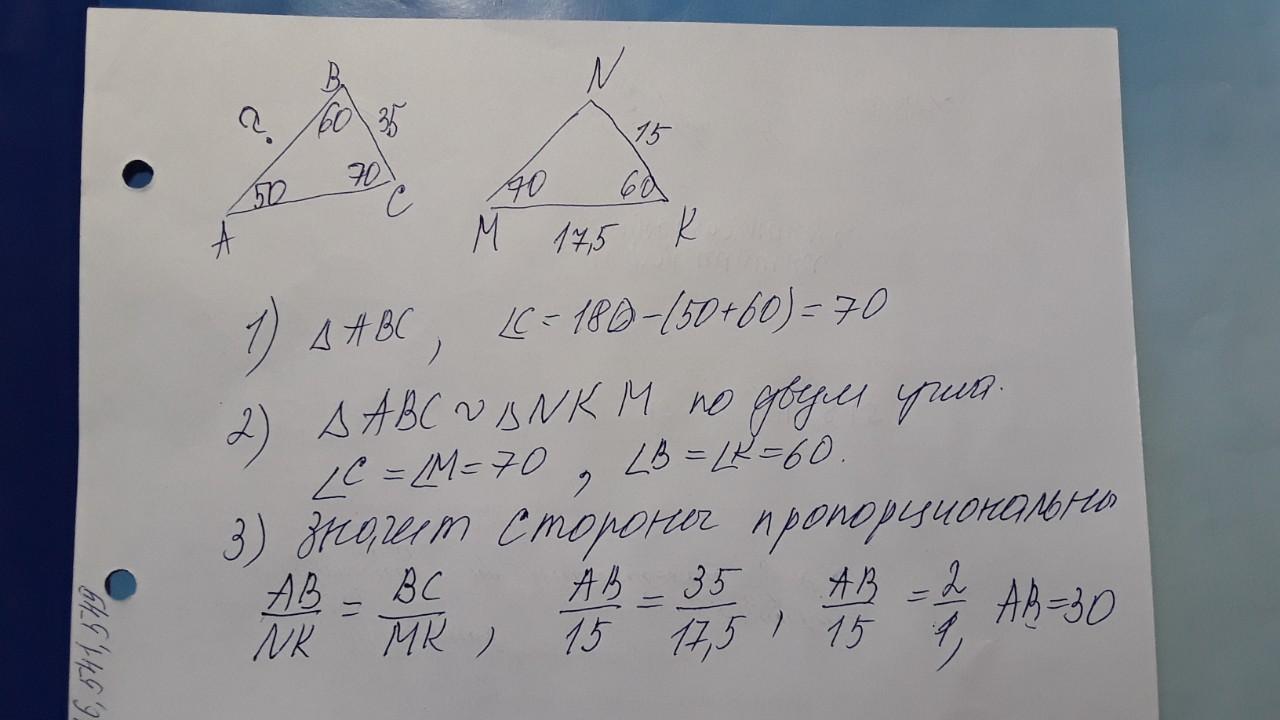 B
N
?
60
35
15
50
70
70
60
A
C
M
17,5
K
1) ΔABC, ∠C = 180-(50+60) = 70
2) ΔABC ∾ ΔNKM по двум углам.
∠C = ∠M = 70, ∠B = ∠K = 60.
3) Значит стороны пропорциональны
AB/NK = BC/MK, AB/15 = 35/17,5, AB/15 = 2/1, AB = 30